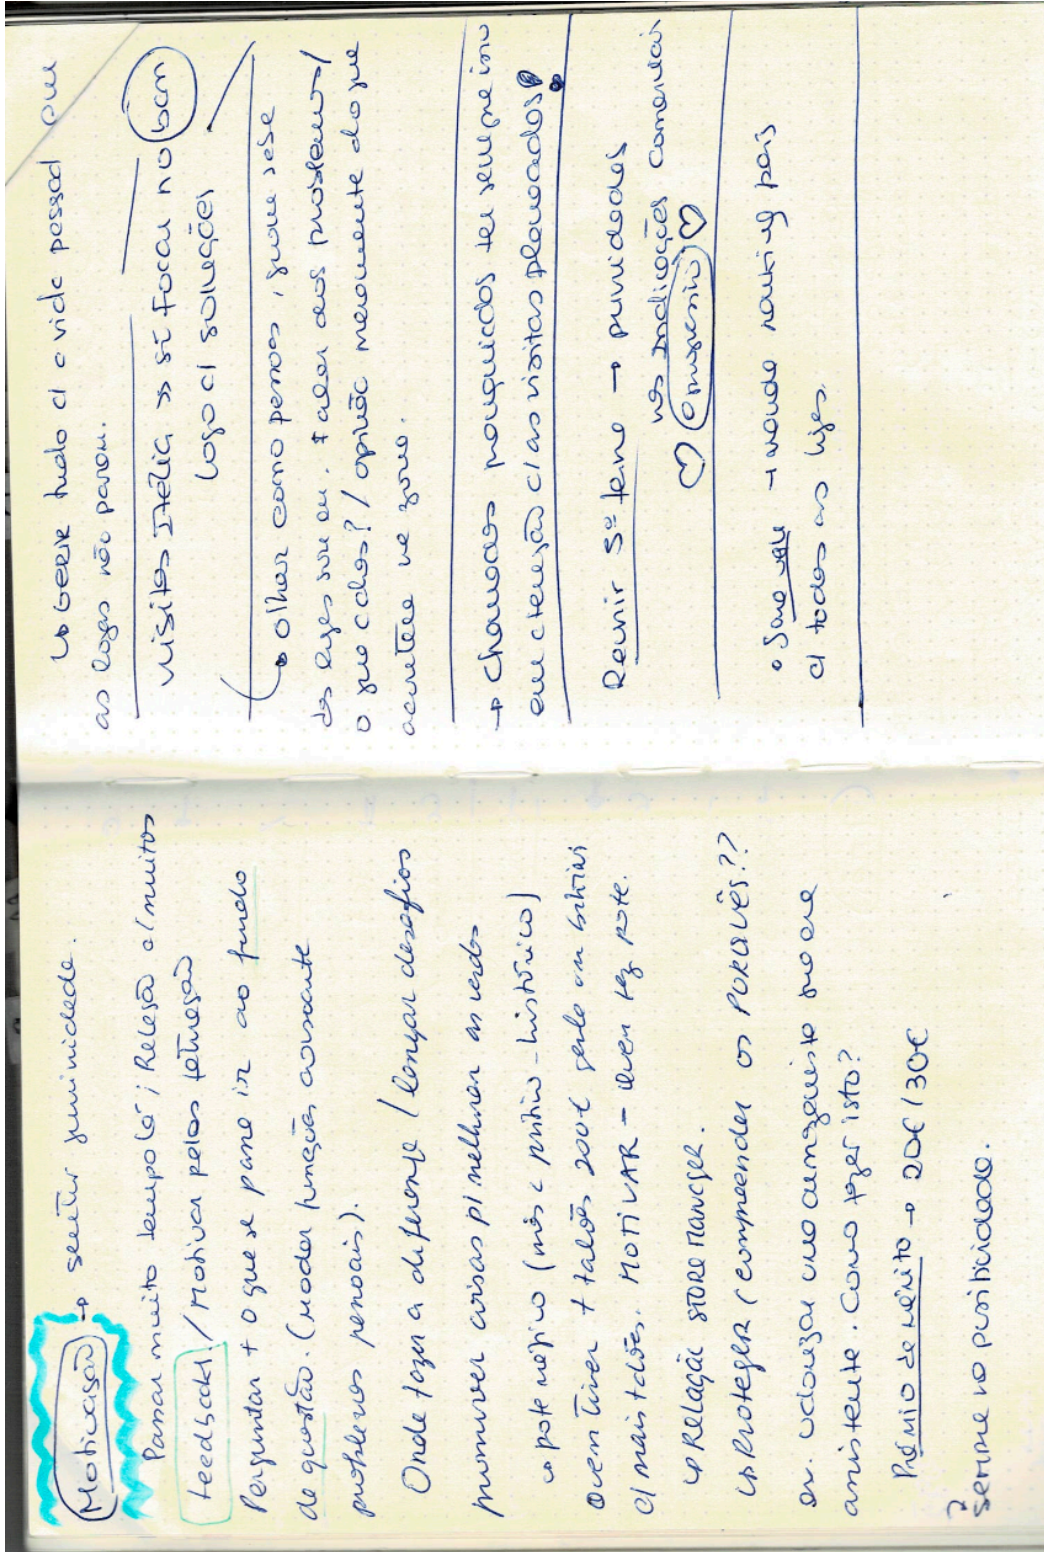 Motivação → sentir genuinidade.
Passar muito tempo lá; Relação c/ muitos
feedback! / Motivar pela formação
Perguntar + o que se passa ir ao fundo
da questão. (mudar funções, consoante
problemas pessoais).
Onde fazer a diferença / lançar desafios
promover coisas p/ melhorar as vendas
↳ pote mágico (mês c/ prémio - histórico)
Quem tiver + talões 200€ ganha um
c/ mais talões. MOTIVAR - quem fez pote.
↳ Relação STORE MANAGER.
↳ PROTEGER (compreender os PORQUÊS??
ex. uma que era
assistente. Como fazer isto?
Prémio de mérito → 20€/30€
? sempre na positividade.
↳ GERIR tudo c/ a vida pessoal que
as lojas não param.
Visitas Itália » só focar no bom
Logo c/ soluções
↳ olhar como pessoas,
das lojas sou eu. falar dos problemas/
o que achas? / opinião do que
acontece na zona.
→ Chamadas ter sempre
em atenção c/ as visitas planeadas!
Reunir 5ª feira →
nas Indicações comerciais
♡ ♡
• Same way → ranking país
c/ todas as lojas.